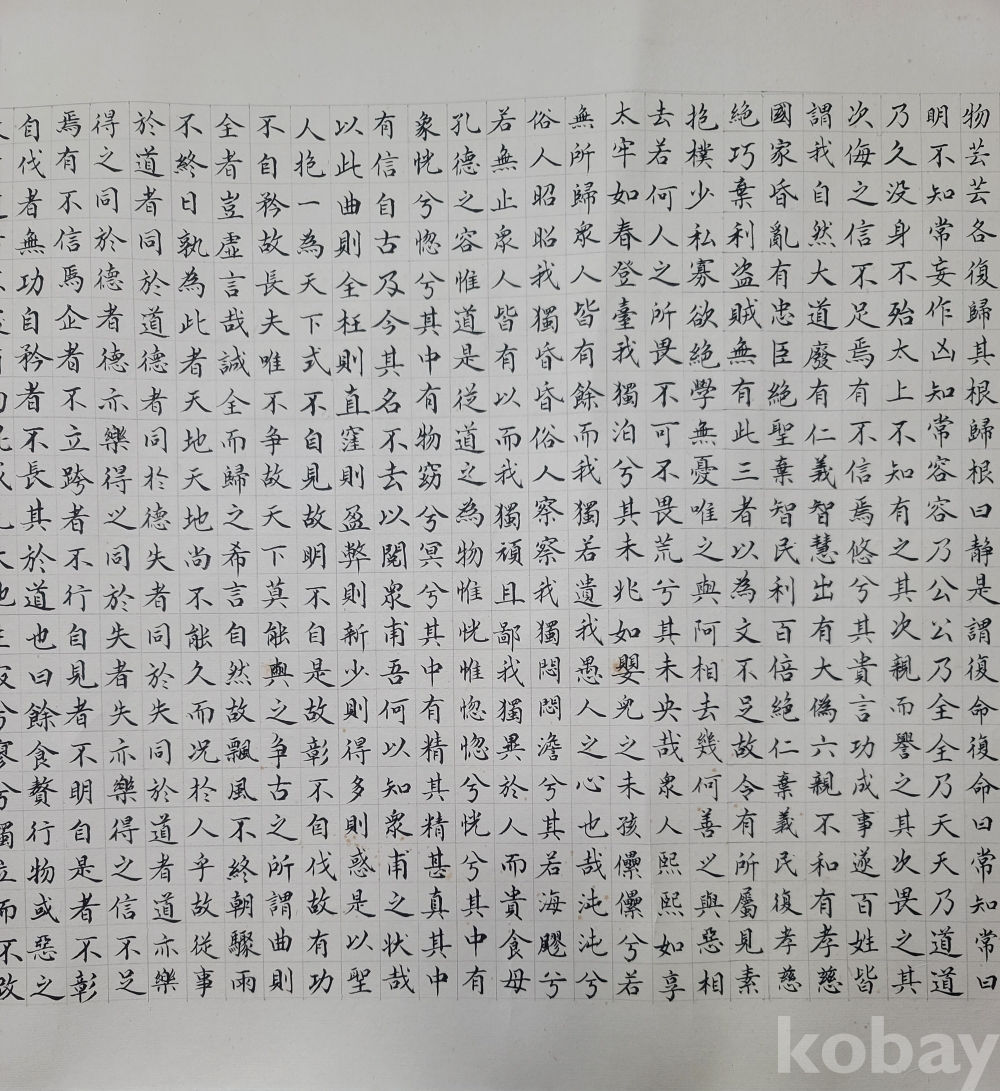 物芸芸各復歸其根歸根曰静是謂復命復命曰常知常曰
明不知常妄作凶知常容容乃公公乃全全乃天天乃道道
乃久没身不殆太上不知有之其次親而譽之其次畏之其
次侮之信不足焉有不信焉悠兮其貴言功成事遂百姓皆
謂我自然大道廢有仁義智慧出有大偽六親不和有孝慈
國家昏亂有忠臣絶聖棄智民利百倍絶仁棄義民復孝慈
絶巧棄利盗賊無有此三者以為文不足故令有所屬見素
抱樸少私寡欲絶學無憂唯之與阿相去幾何善之與惡相
去若何人之所畏不可不畏荒兮其未央哉衆人熙熙如享
太牢如春登臺我獨泊兮其未兆如嬰兒之未孩儽儽兮若
無所歸衆人皆有餘而我獨若遺我愚人之心也哉沌沌兮
俗人昭昭我獨昏昏俗人察察我獨悶悶澹兮其若海飂兮
若無止衆人皆有以而我獨頑且鄙我獨異於人而貴食母
孔德之容惟道是從道之為物惟恍惟惚惚兮恍兮其中有
象恍兮惚兮其中有物窈兮冥兮其中有精其精甚真其中
有信自古及今其名不去以閱衆甫吾何以知衆甫之狀哉
以此曲則全枉則直窪則盈弊則新少則得多則惑是以聖
人抱一為天下式不自見故明不自是故彰不自伐故有功
不自矜故長夫唯不争故天下莫能與之争古之所謂曲則
全者豈虛言哉誠全而歸之希言自然故飄風不終朝驟雨
不終日孰為此者天地天地尚不能久而况於人乎故從事
於道者同於道德者同於德失者同於失同於道者道亦樂
得之同於德者德亦樂得之同於失者失亦樂得之信不足
焉有不信焉企者不立跨者不行自見者不明自是者不彰
自伐者無功自矜者不長其於道也曰餘食贅行物或惡之
寥兮獨立而不改
kobay